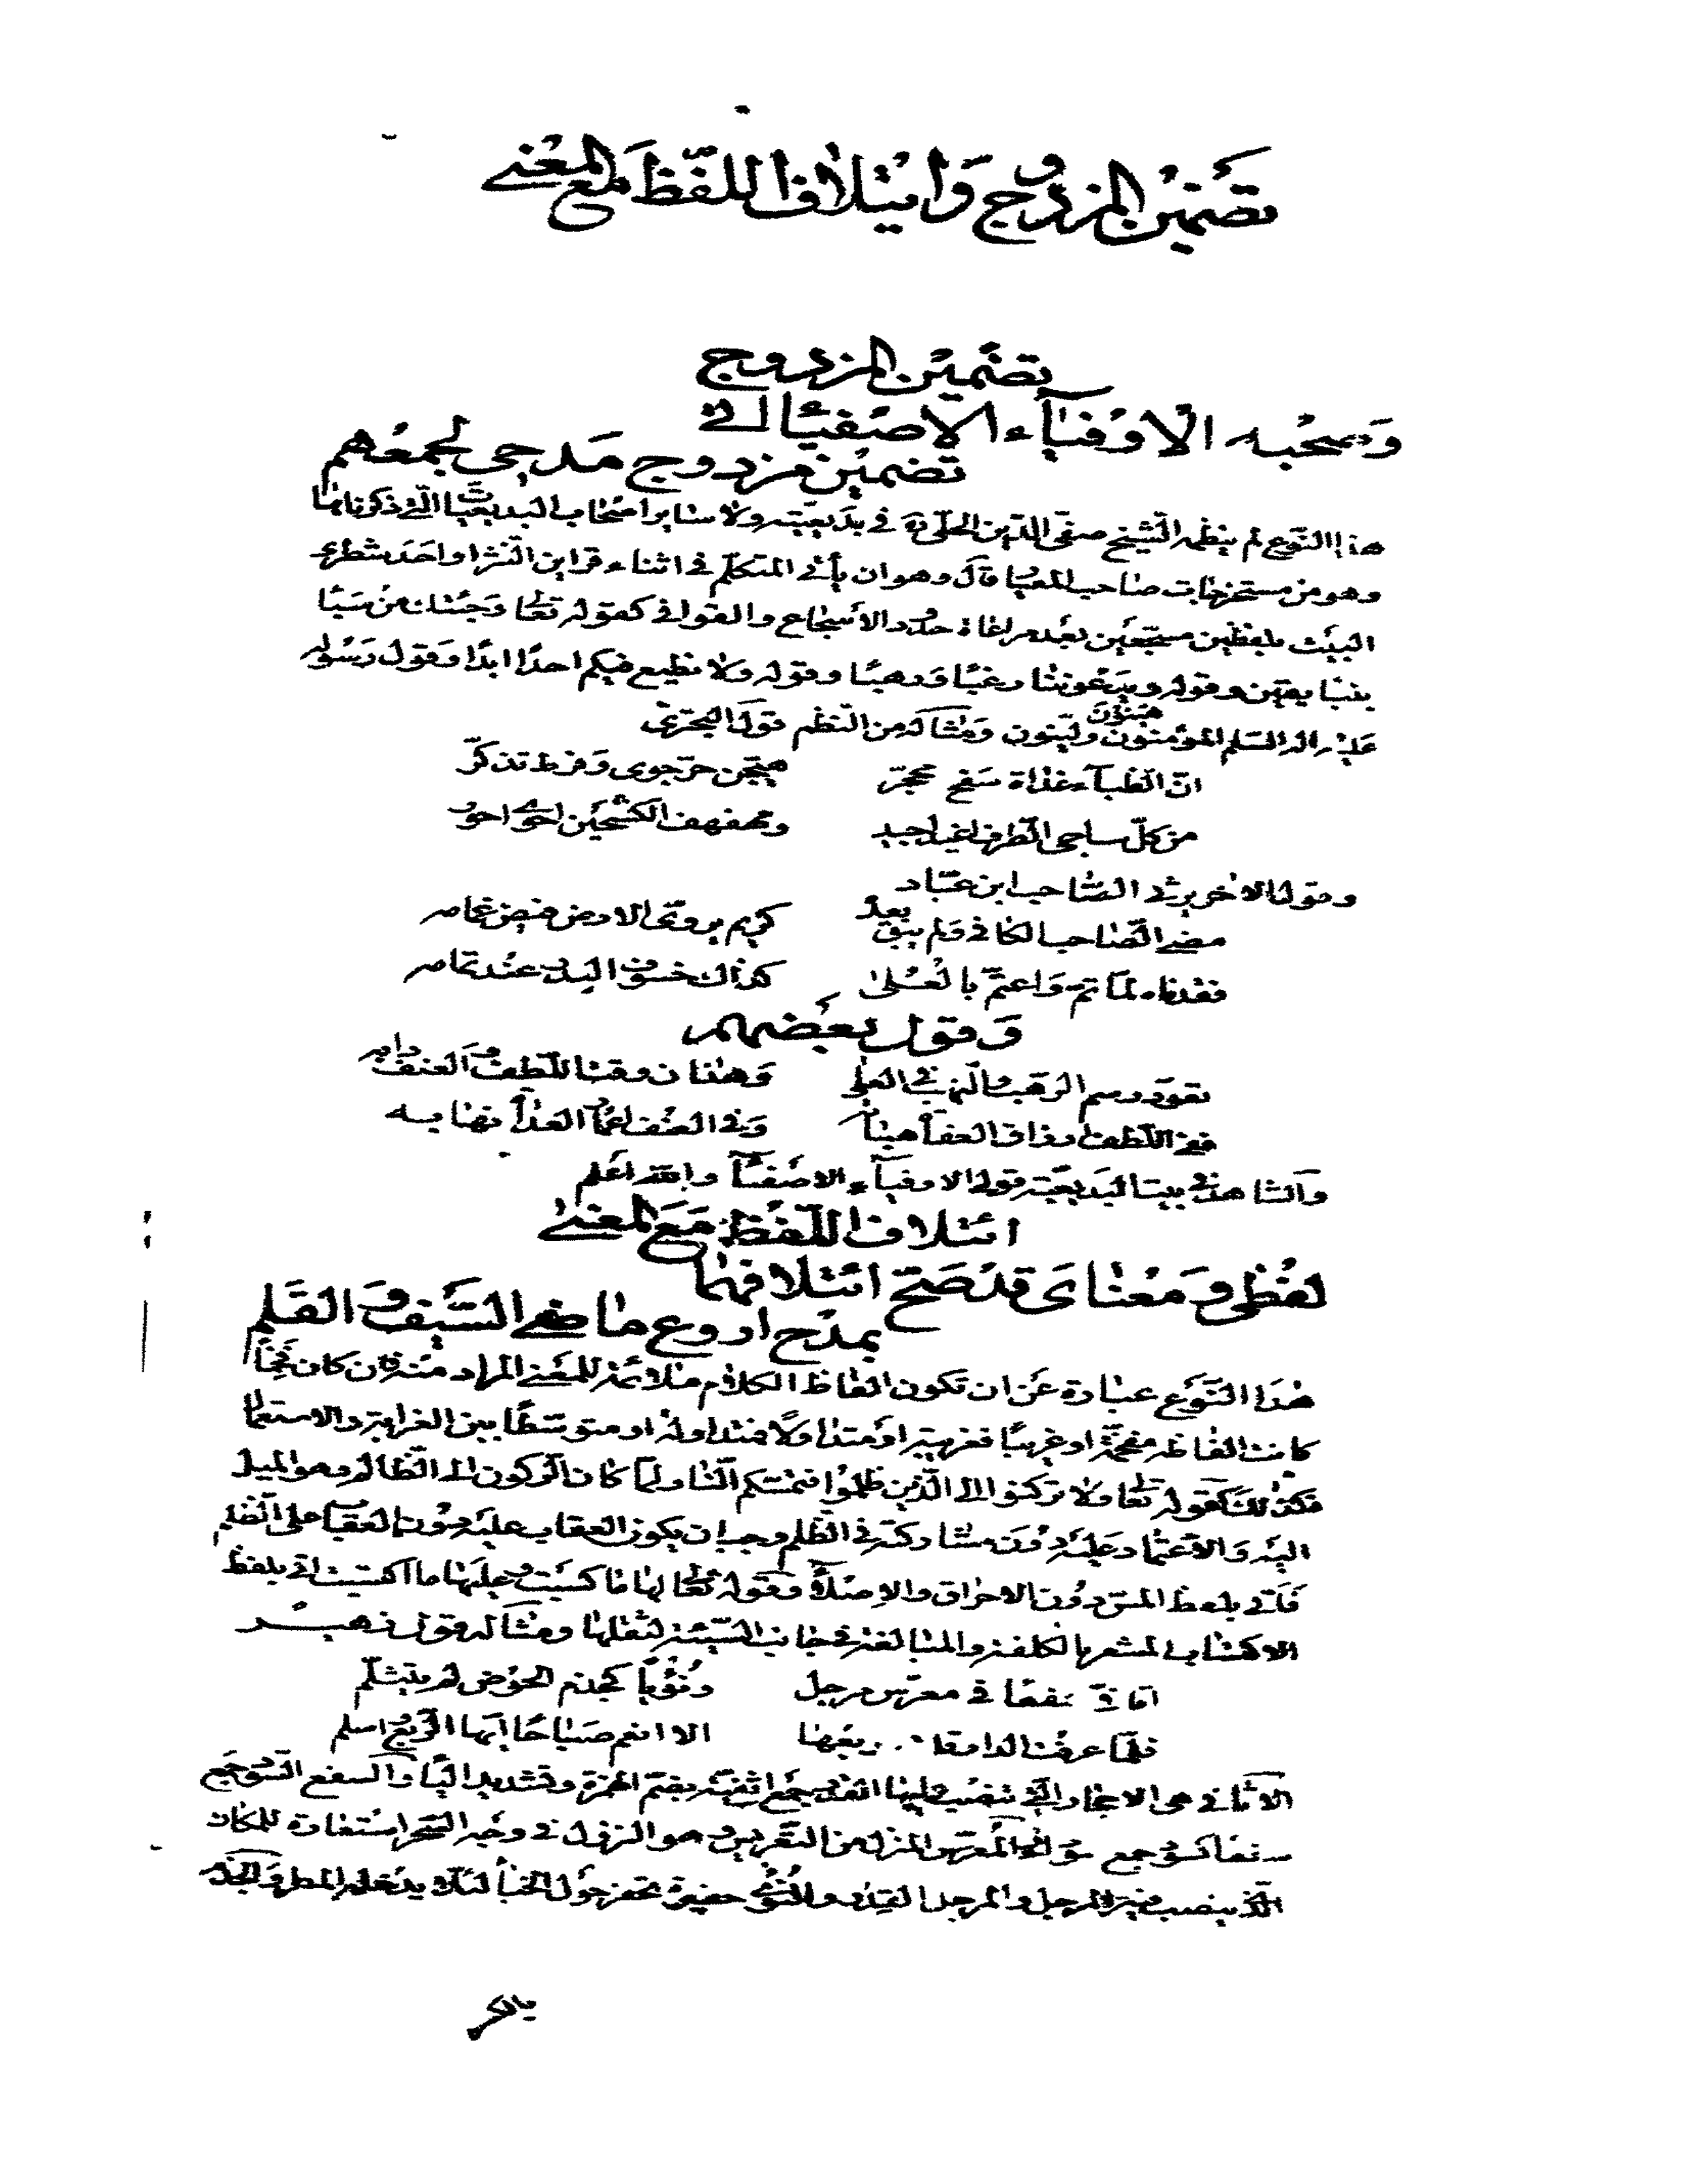 تضمين المزدوج وايتلاف اللفظ مع المعنى
تضمين المزدوج
وصحبه الاوفياء الاصفيا التى
تضمين مزدوج مدحى لجمعهم
هذا النوع لم ينظمه الشيخ صفى الدين الحلى فى بديعيته ولا ساير اصحاب البديعيات التى ذكرناها
وهو من مستخرجات صاحب المعيار قال وهو ان يأتى المتكلم فى اثناء قراين النثر او احد شطرى
البيت بلفظين مسجعين بعد مراعاة حدود الأسجاع والقوافى كقوله تعالى وجئتك من سبأ
بنبأ يقين وقوله ويدعوننا رغبًا ورهبًا وقوله ولا نطيع فيكم احدًا ابدًا وقول رسوله
عليه السلم المؤمنون هينون ولينون ومثاله من النظم قول البحترى
انّ الظباء غداة سفح محجّر هيّجن حرّ جوى وفرط تذكّر
من كلّ ساجى الطرف اغيد اجيد ومهفهف الكشحين احوى احور
وقول الاخر يرثى الصاحب ابن عبّاد
مضى الصاحب الكافى ولم يبق بعده كريم يروى الارض فيض غمامه
فقدناه لمّا تمّ واعتمّ بالعلى كذاك خسوف البدر عند تمامه
وقول بعضهم
تعوّد رسم الوهب والنهب فى العلى وهذان وقت اللطف والعنف دابه
ففى اللطف ارزاق العفاة هباته وفى العنف اعمار العداة نهابه
والشاهد فى بيت البديعية قولى الاوفياء الاصفياء والله اعلم
ائتلاف اللفظ مع المعنى
لفظى ومعناى قد صحّ ائتلافهما
بمدح اروع ماضى السيف والقلم
هذا النوع عبارة عن ان تكون الفاظ الكلام ملائمة للمعنى المراد منه فان كان فخمًا
كانت الفاظه مفخمة او غريبًا فغريبة او متداولًا فمتداولة او متوسّطًا بين الغرابة والاستعمال
فكذلك كقوله تعالى ولا تركنوا الى الّذين ظلموا فتمسّكم النار لما كان الركون الى الظالم وهو الميل
اليه والاعتماد عليه دون مشاركته فى الظلم وجب ان يكون العقاب عليه دون العقاب على الظلم
فأتى بلفظ المس دون الاحراق والاصلاء وقوله تعالى لها ما كسبت وعليها ما اكتسبت اتى بلفظ
الاكتساب المشعر بالكلفة والمبالغة فى جانب السيئة لثقلها ومثاله قول زهيـر
اثافىّ سفعًا فى معرّس مرجل ونؤيًا كجذم الحوض لم يتثلّم
فلمّا عرفت الدار قلت لربعها الا انعم صباحًا ايها الربع واسلم
الاثافى هى الاحجار التى تنصب عليها القدر جمع اثفية بضم الهمزة وتشديد الياء والسفع السود جمع
سفعا كسود جمع سوداء والمعرس المنزل من التعريس وهو النزول فى وجه السحر استعارة للمكان
الّذى ينصب فيه المرجل والمرجل القدر والنؤى حفيرة تحفر حول الخباء لئلا يدخله المطر والجذم